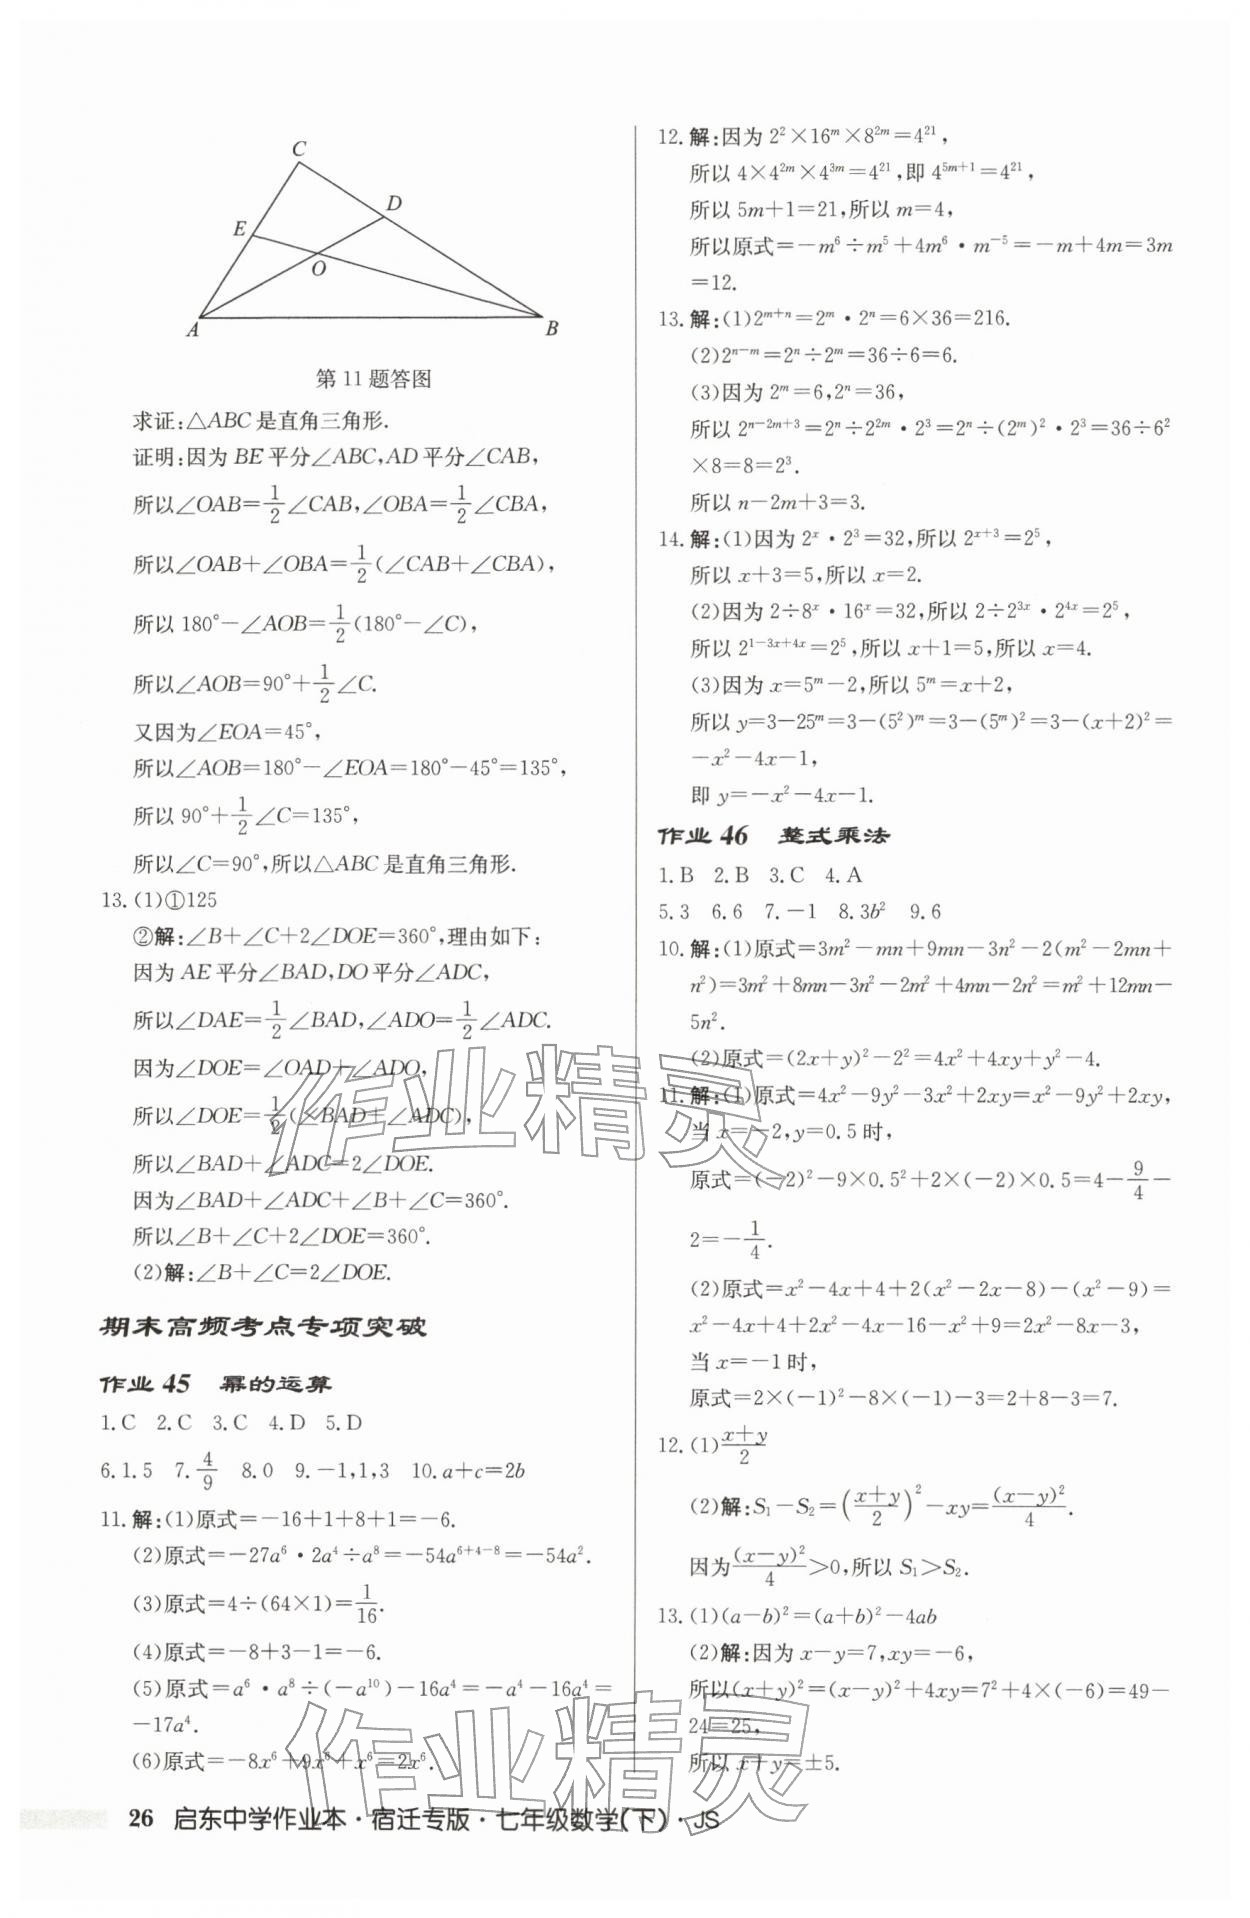 C
D
E
O
A
B
第11题答图
求证:△ABC是直角三角形.
证明:因为BE平分∠ABC,AD平分∠CAB,
所以∠OAB=1/2∠CAB,∠OBA=1/2∠CBA,
所以∠OAB+∠OBA=1/2(∠CAB+∠CBA),
所以180°-∠AOB=1/2(180°-∠C),
所以∠AOB=90°+1/2∠C.
又因为∠EOA=45°,
所以∠AOB=180°-∠EOA=180°-45°=135°,
所以90°+1/2∠C=135°,
所以∠C=90°,所以△ABC是直角三角形.
13.(1)①125
②解:∠B+∠C+2∠DOE=360°,理由如下:
因为AE平分∠BAD,DO平分∠ADC,
所以∠DAE=1/2∠BAD,∠ADO=1/2∠ADC.
因为∠DOE=∠OAD+∠ADO,
所以∠DOE=1/2(∠BAD+∠ADC),
所以∠BAD+∠ADC=2∠DOE.
因为∠BAD+∠ADC+∠B+∠C=360°.
所以∠B+∠C+2∠DOE=360°.
(2)解:∠B+∠C=2∠DOE.
期末高频考点专项突破
作业45 幂的运算
1.C 2.C 3.C 4.D 5.D
6.1.5 7.4/9 8.0 9.-1,1,3 10.a+c=2b
11.解:(1)原式=-16+1+8+1=-6.
(2)原式=-27a⁶·2a⁴÷a⁸=-54a⁶⁺⁴⁻⁸=-54a².
(3)原式=4÷(64×1)=1/16.
(4)原式=-8+3-1=-6.
(5)原式=a⁶·a⁸÷(-a¹⁰)-16a⁴=-a⁴-16a⁴=
-17a⁴.
(6)原式=-8x⁶+9x⁶+x⁶=2x⁶.
12.解:因为2²×16ᵐ×8²ᵐ=4²¹,
所以4×4²ᵐ×4³ᵐ=4²¹,即4⁵ᵐ⁺¹=4²¹,
所以5m+1=21,所以m=4,
所以原式=-m⁶÷m⁵+4m⁶·m⁻⁵=-m+4m=3m
=12.
13.解:(1)2ᵐ⁺ⁿ=2ᵐ·2ⁿ=6×36=216.
(2)2ⁿ⁻ᵐ=2ⁿ÷2ᵐ=36÷6=6.
(3)因为2ᵐ=6,2ⁿ=36,
所以2ⁿ⁻²ᵐ⁺³=2ⁿ÷2²ᵐ·2³=2ⁿ÷(2ᵐ)²·2³=36÷6²
×8=8=2³.
所以n-2m+3=3.
14.解:(1)因为2ˣ·2³=32,所以2ˣ⁺³=2⁵,
所以x+3=5,所以x=2.
(2)因为2÷8ˣ·16ˣ=32,所以2÷2³ˣ·2⁴ˣ=2⁵,
所以2¹⁻³ˣ⁺⁴ˣ=2⁵,所以x+1=5,所以x=4.
(3)因为x=5ᵐ-2,所以5ᵐ=x+2,
所以y=3-25ᵐ=3-(5²)ᵐ=3-(5ᵐ)²=3-(x+2)²=
-x²-4x-1,
即y=-x²-4x-1.
作业46 整式乘法
1.B 2.B 3.C 4.A
5.3 6.6 7.-1 8.3b² 9.6
10.解:(1)原式=3m²-mn+9mn-3n²-2(m²-2mn+
n²)=3m²+8mn-3n²-2m²+4mn-2n²=m²+12mn-
5n².
(2)原式=(2x+y)²-2²=4x²+4xy+y²-4.
11.解:(1)原式=4x²-9y²-3x²+2xy=x²-9y²+2xy,
当x=-2,y=0.5时,
原式=(-2)²-9×0.5²+2×(-2)×0.5=4-9/4-
2=-1/4.
(2)原式=x²-4x+4+2(x²-2x-8)-(x²-9)=
x²-4x+4+2x²-4x-16-x²+9=2x²-8x-3,
当x=-1时,
原式=2×(-1)²-8×(-1)-3=2+8-3=7.
12.(1)(x+y)/2
(2)解:S₁-S₂=((x+y)/2)²-xy=(x-y)²/4.
因为(x-y)²/4>0,所以S₁>S₂.
13.(1)(a-b)²=(a+b)²-4ab
(2)解:因为x-y=7,xy=-6,
所以(x+y)²=(x-y)²+4xy=7²+4×(-6)=49-
24=25,
所以x+y=±5.
作业精灵
作业精灵
26 启东中学作业本·宿迁专版·七年级数学(下)·JS